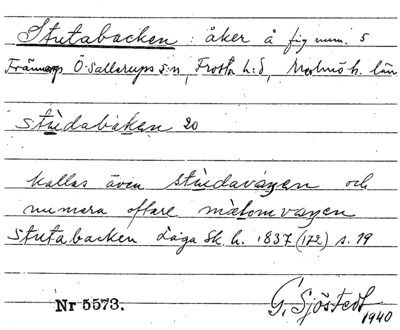 Stutabacken : åker å fig num. 5
Ö. Sallerups s:n, Frosta h:d, Malmöh. län
studabakan 20
kallas även studavagen och
numera oftare matomvagen
Stutabacken Laga Sk. h. 1837 (172) s. 19
Nr 5573.
G. Sjöstedt
1940